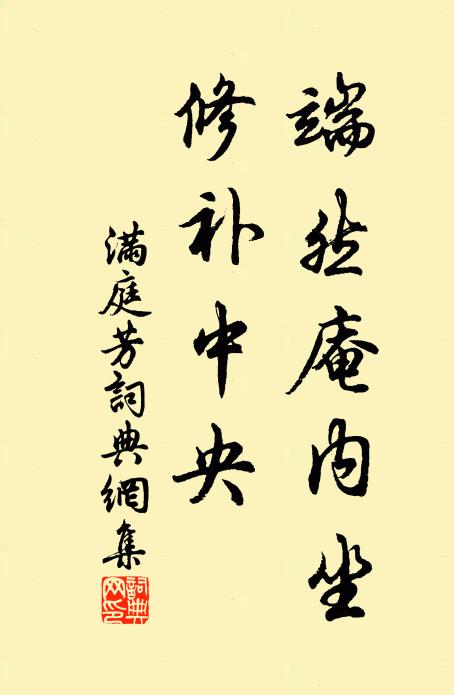 端然庵内坐
修补中央
满庭芳詞典網集
詞典网印